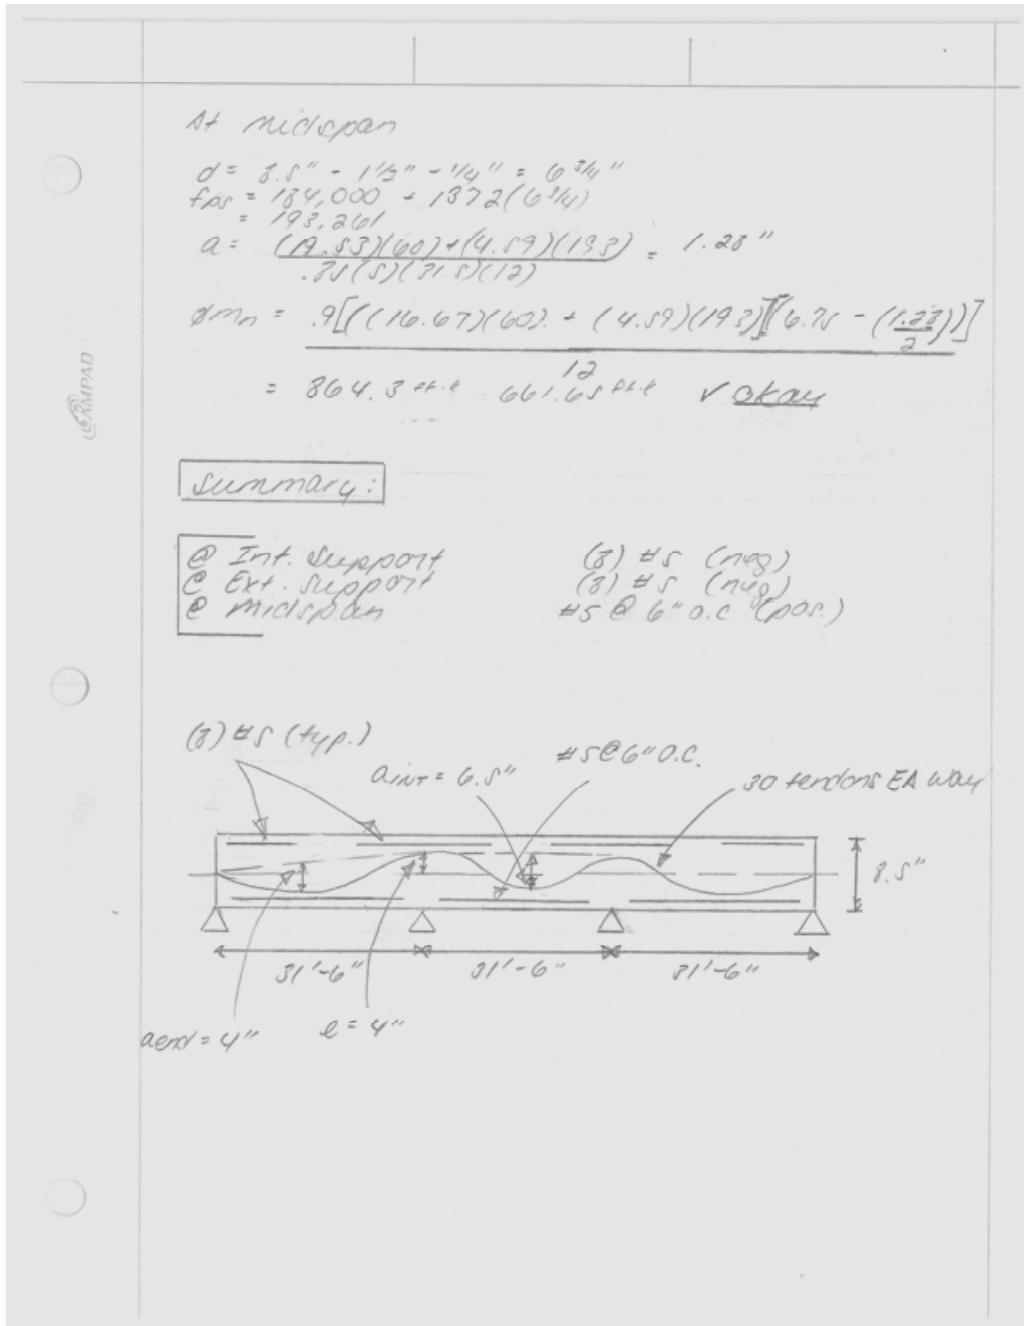 At midspan
d = 8.5" - 1 1/2" - 1/4" = 6 3/4"
fps = 184,000 + 1372(6 3/4)
= 193,261
a = (19.53)(60)+(4.59)(193) = 1.28"
.85(5)(31.5)(12)
ØMn = .9[((16.67)(60) + (4.59)(193)](6.75 - (1.28))]
2
12
= 864.3 ft·k 661.65 ft·k ✓ okay
AMPAD
Summary:
@ Int. Support (8) #5 (neg)
@ Ext. Support (8) #5 (neg)
@ Midspan #5 @ 6" O.C (pos.)
(8) #5 (typ.)
#5@6" O.C.
aINT = 6.5"
30 tendons EA way
8.5"
31'-6" 31'-6" 31'-6"
aend = 4" e = 4"